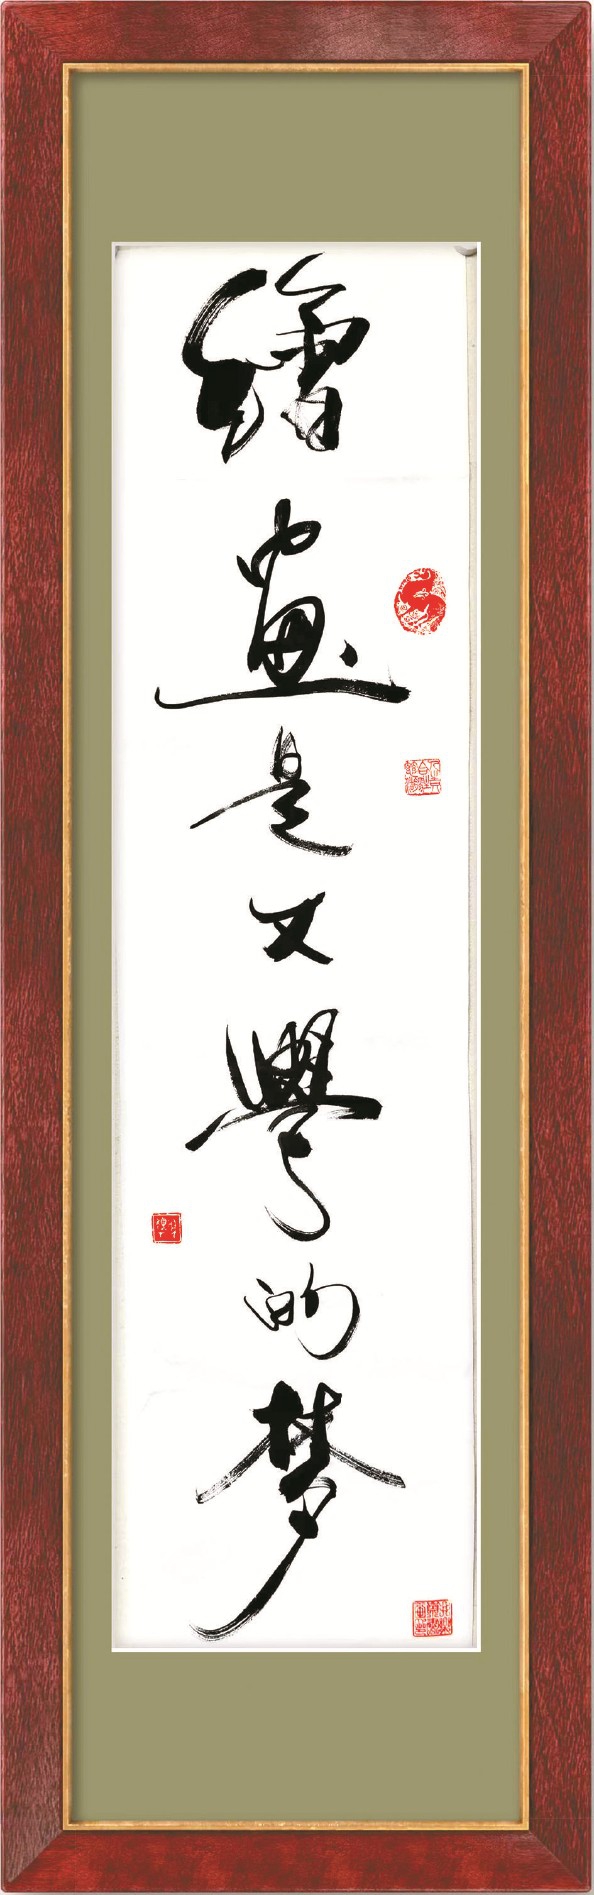 繪畫是文學的梦